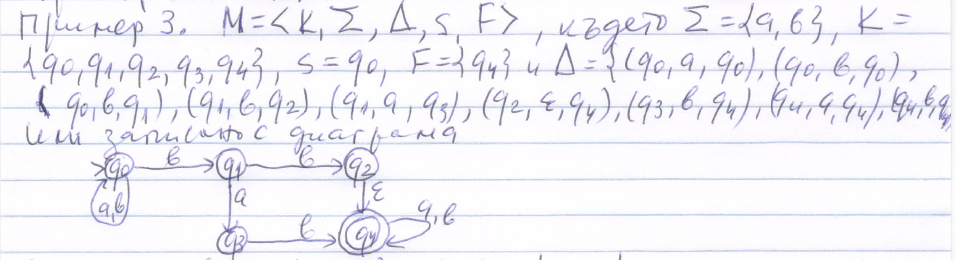 Пример 3. M=<K, Σ, Δ, s, F>, където Σ={a, b}, K=
{q0, q1, q2, q3, q4}, s=q0, F={q4} и Δ={(q0, a, q0), (q0, b, q0),
(q0, b, q1), (q1, b, q2), (q1, a, q3), (q2, ε, q4), (q3, b, q4), (q4, a, q4), (q4, b, q4
Или записано с диаграма
q0 b q1 b q2
a,b a ε a,b
q3 b q4